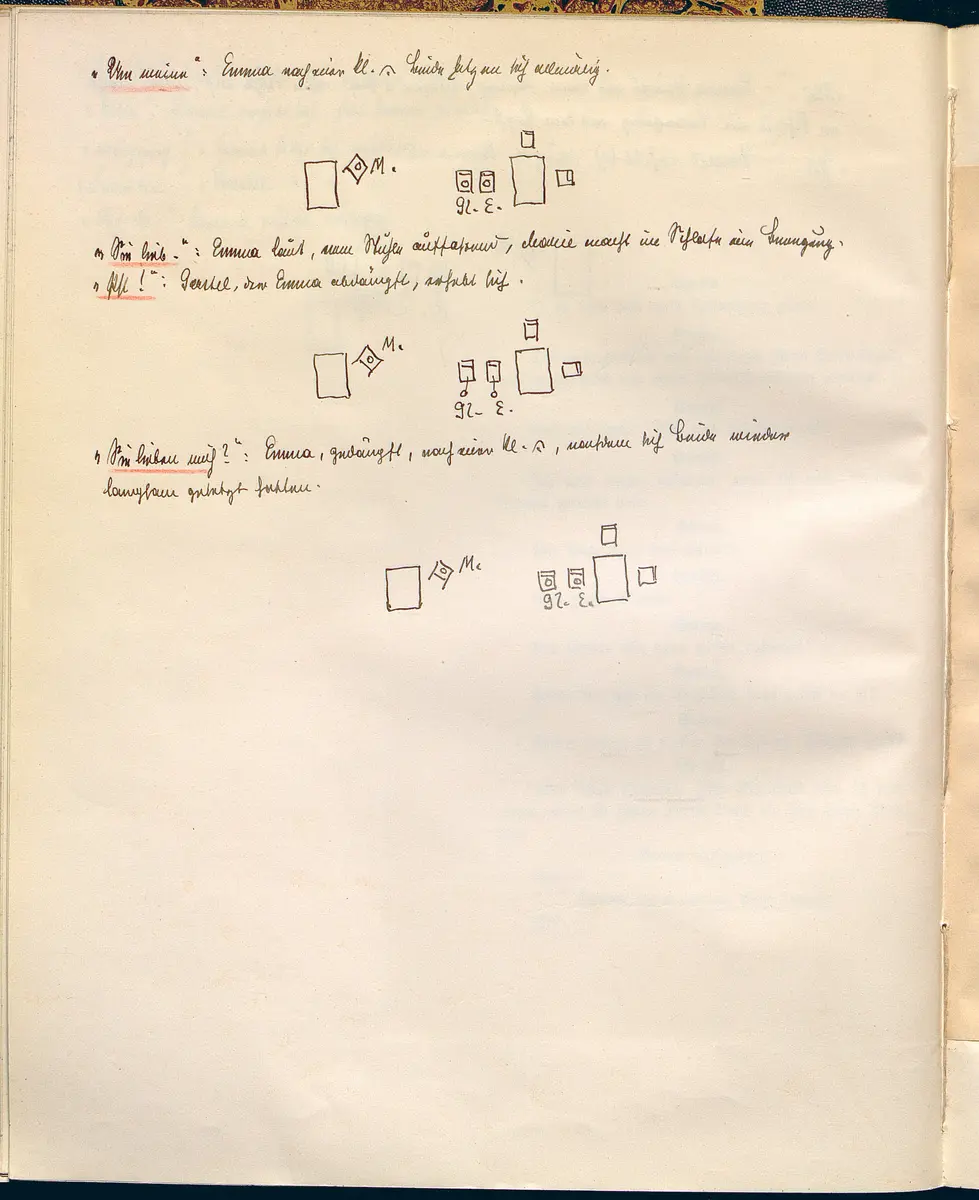 "Um meine": Emma nach einer kl. ⌒ Beide setzen sich allmälig.
M.
G. E.
"Sie lieb-": Emma laut, vom Stuhle auffahrend, Marie macht im Schlafe eine Bewegung.
"Pst!": Gerstel, der Emma abdämpft, erhebt sich.
M.
G. E.
"Sie lieben mich?": Emma, gedämpft, nach einer kl. ⌒, nachdem sich Beide wieder
langsam gesetzt hatten.
M.
G. E.